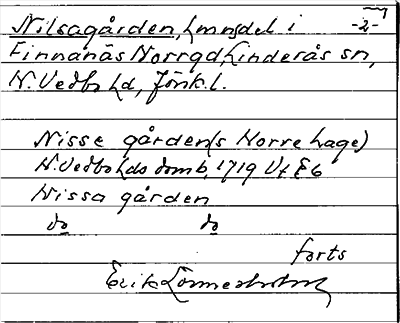 Nilsagården, hmnsdel i -2-
Finnanäs Norrgd, Linderås sn,
N. Vedbo hd, Jönk.l.
Nisse gården (s Norre hage)
N. Vedbo hds domb, 1719 Vt § 6
Nissa gården
do do
forts
Erik